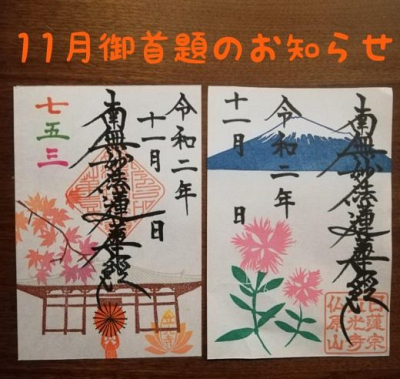 11月御首題のお知らせ
令和二年
十一月 日
南無妙法蓮華経
七五三
南無妙法蓮華経
令和二年
十一月 日
日蓮宗
光寺
仏原山